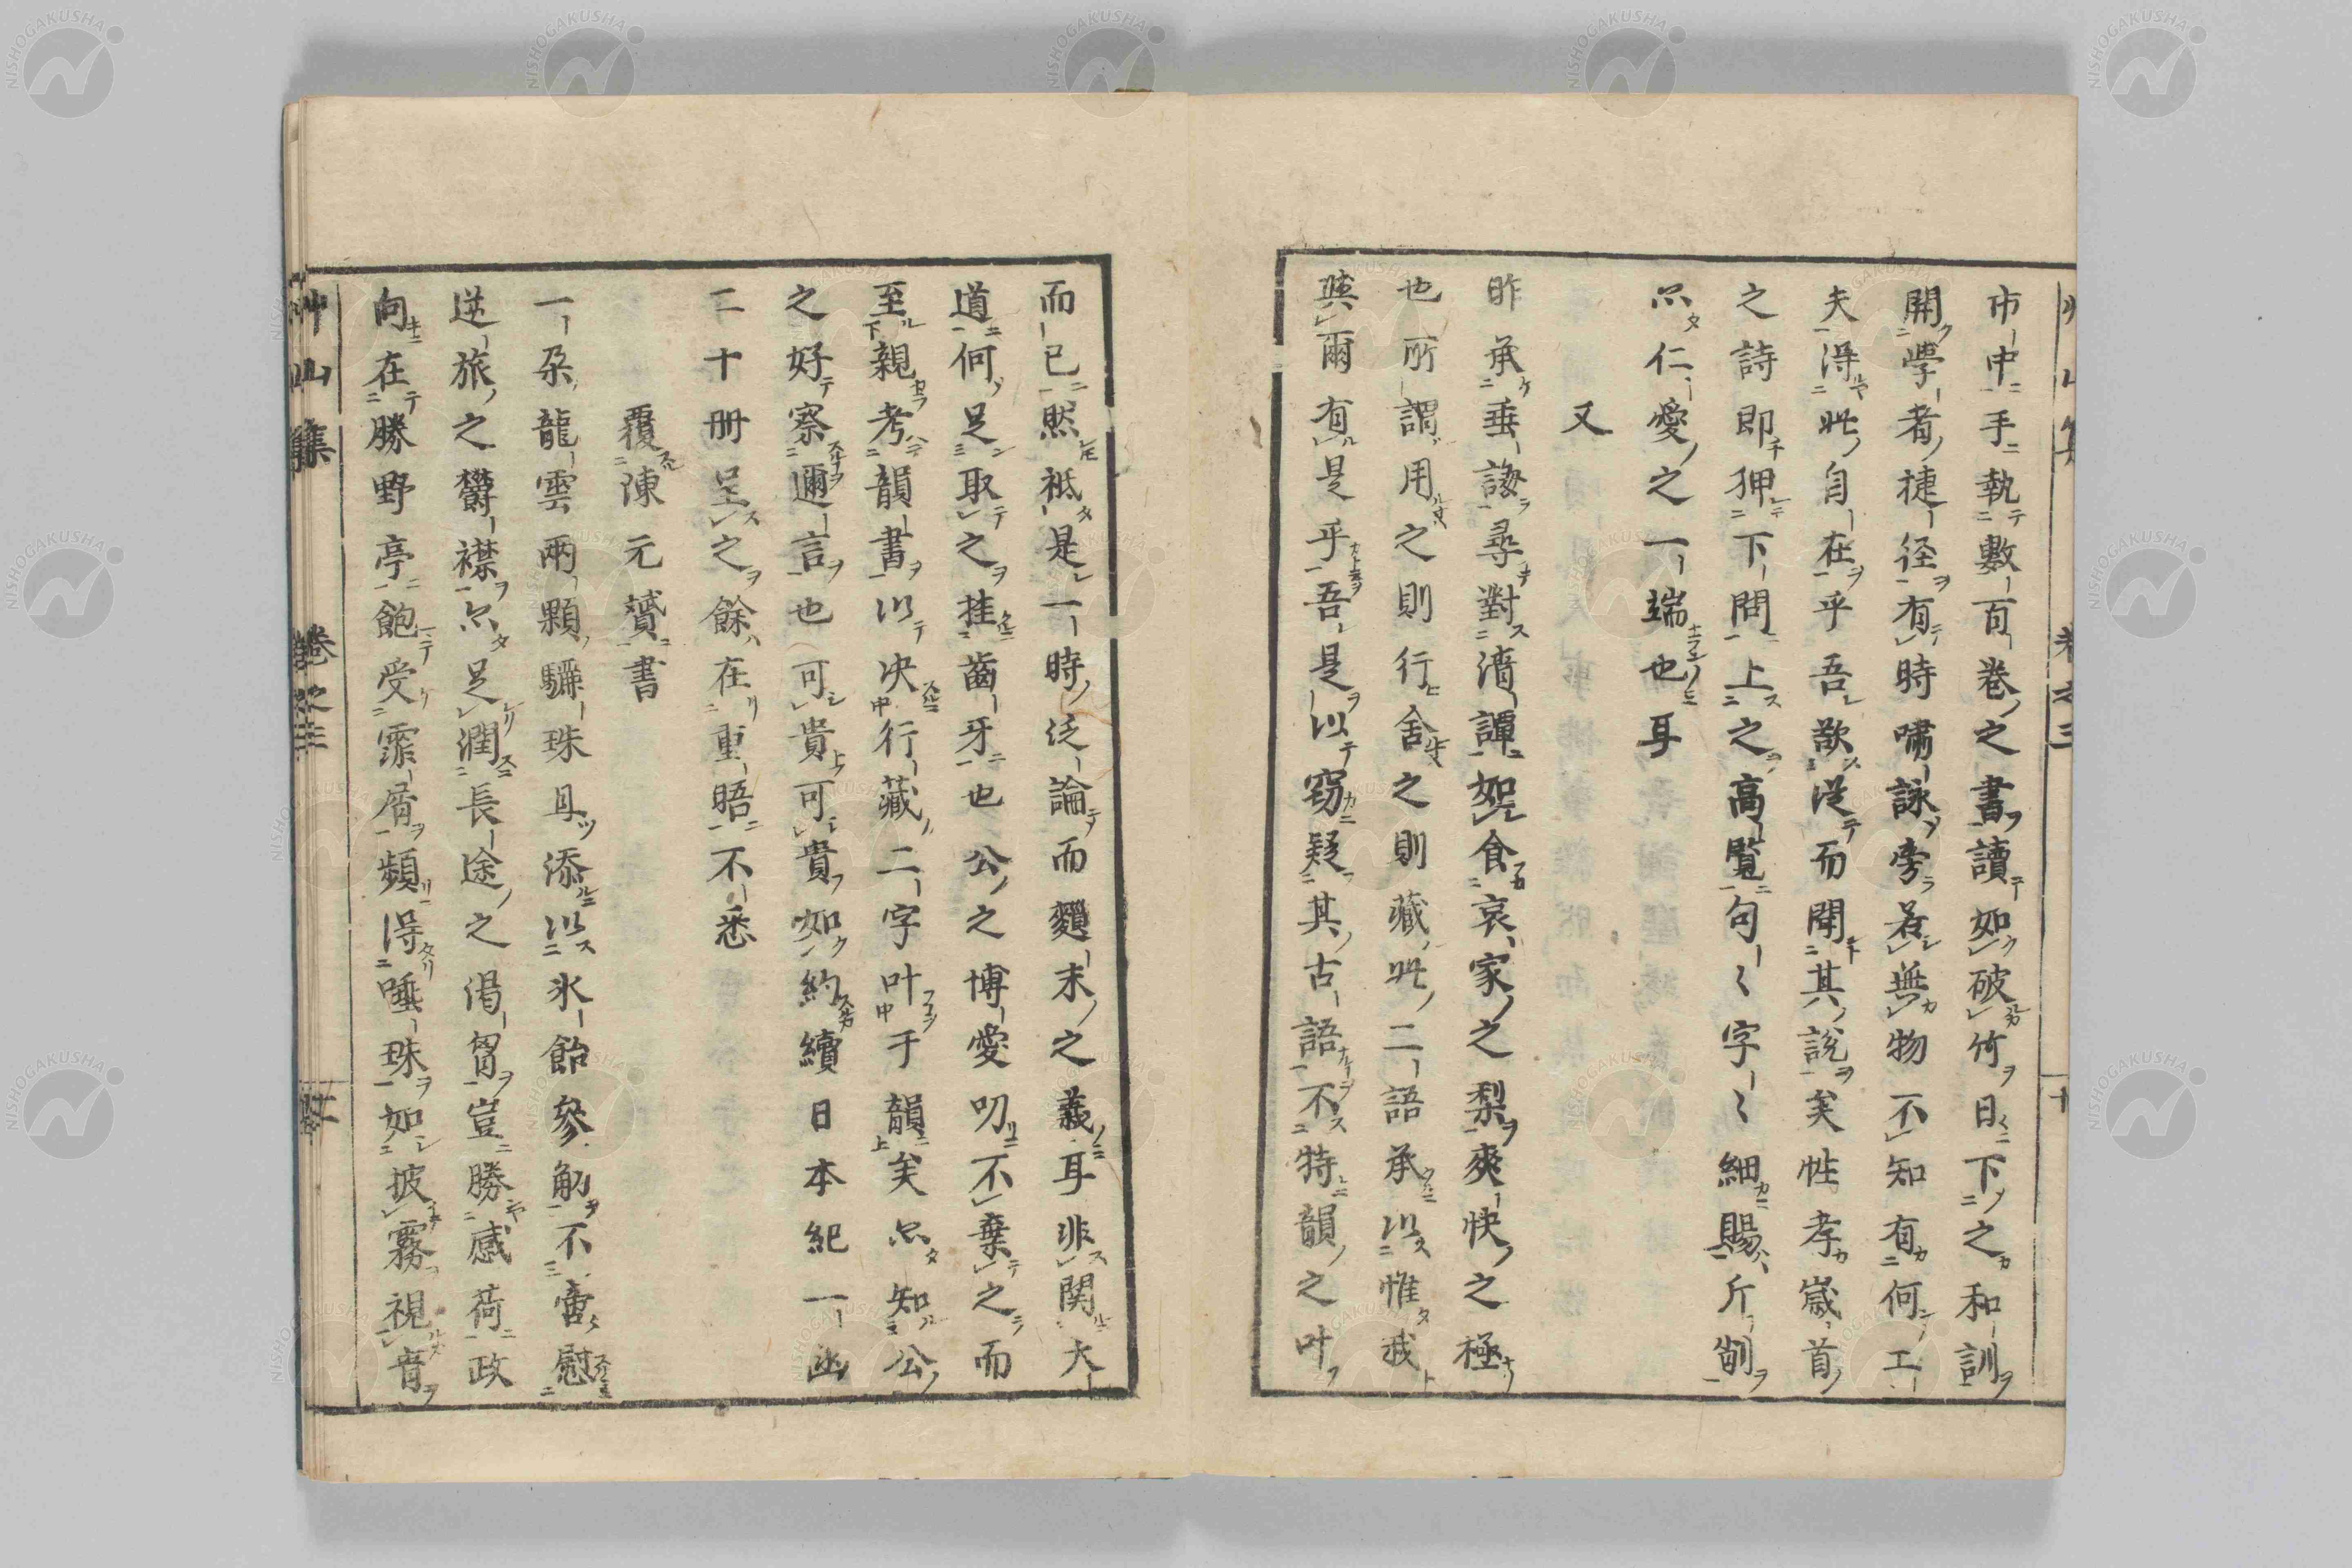 巾中手執數百卷之書讀如破竹日下之和訓
開學者捷径有時嘯詠旁若無物不知有何工
夫淂此自在乎吾欲従而聞其説矣性孝崴首
之詩即狎下問上之高覧句〻字〻細賜斤劊
尒仁愛之一端也耳
又
昨承垂誨尋對清譚如食哀家之梨爽快之極
也所謂用之則行舎之則藏此二語承以惟我
與爾有是乎吾是以窃疑其古語不特韻之叶
而已然祗是一時泛論而麤末之義耳非関大
道何足取之挂齒牙也公之博愛叨不棄之而
至親考韻書以决行藏二字叶于韻矣尒知公
之好察邇言也可貴可貴如約續日本紀一凾
二十册呈之餘在重晤不悉
覆陳元贇書
一朶龍雲兩顆驪珠且添以氷飴參觔不啻慰
逆旅之欝襟尒足潤長途之渇胷豈勝感荷政
向在勝野亭飽受霏屑頻淂唾珠如披霧視音
艸山集 卷之三